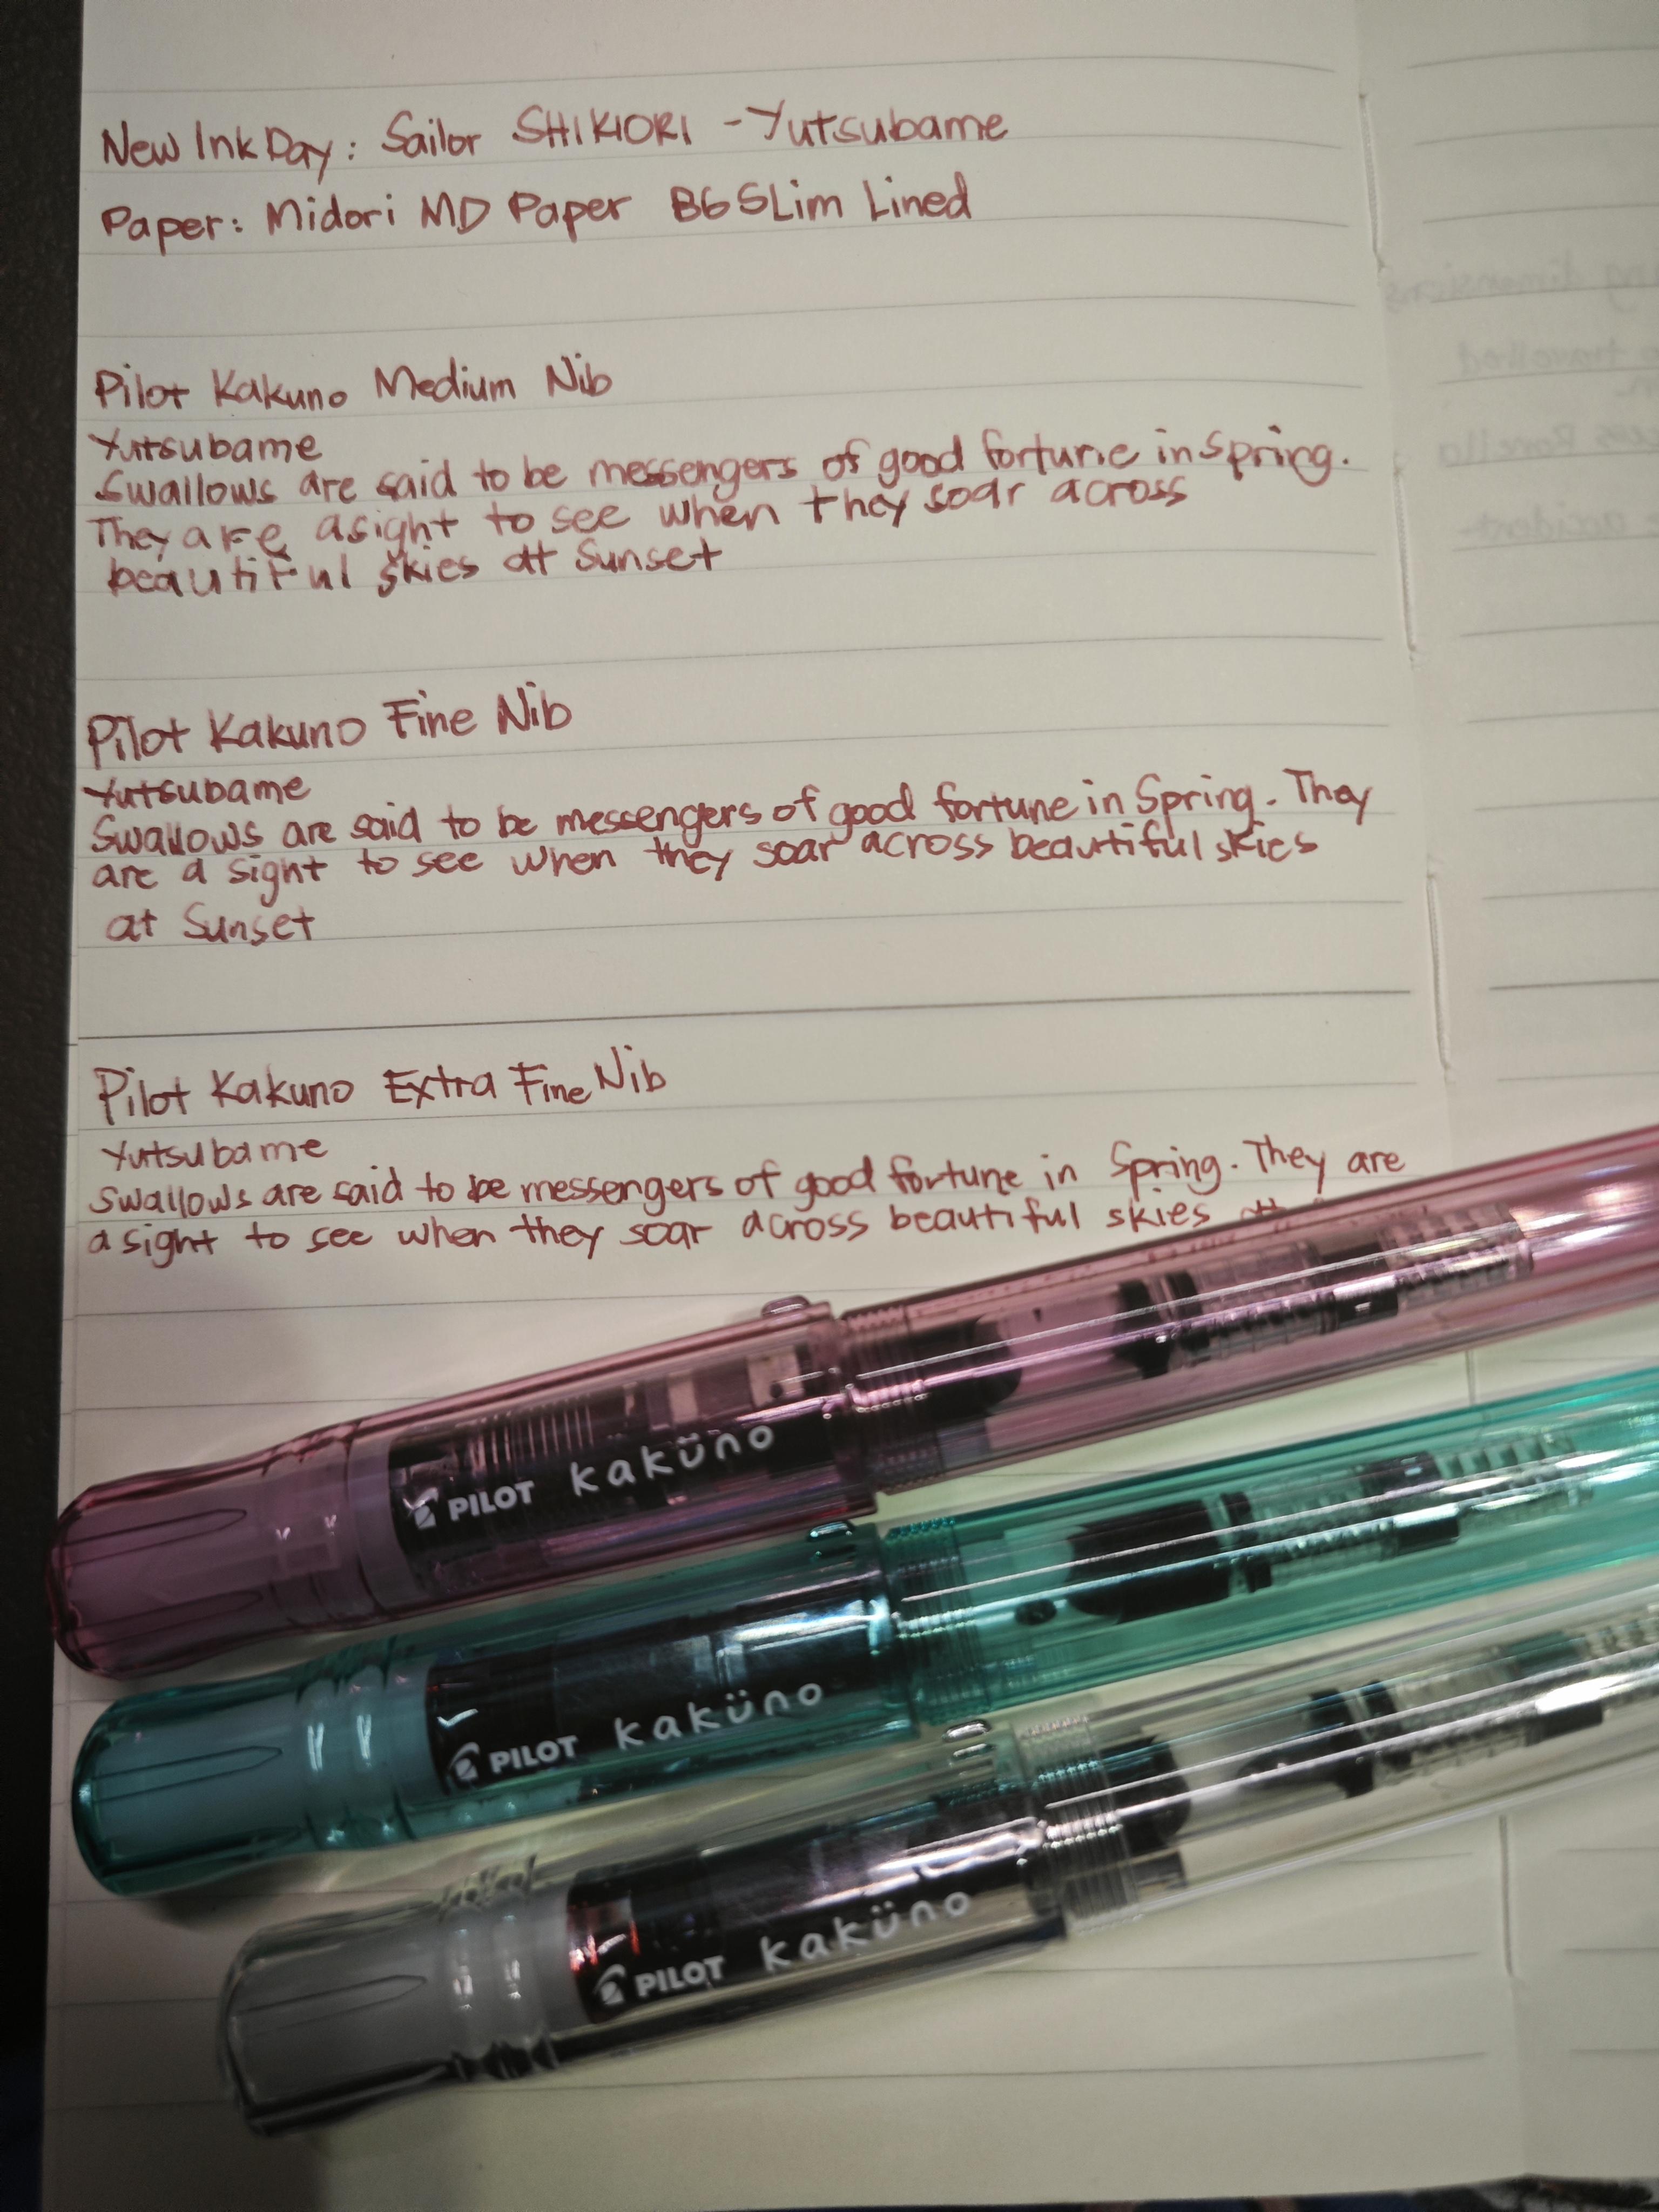 New Ink Day: Sailor SHIKIORI - Yutsubame
Paper: Midori MD Paper B6 SLim Lined
Pilot Kakuno Medium Nib
Yutsubame
Swallows are said to be messengers of good fortune in Spring.
They are a sight to see when they soar across
beautiful skies at Sunset
Pilot Kakuno Fine Nib
Yutsubame
Swallows are said to be messengers of good fortune in Spring. They
are a sight to see when they soar across beautiful skies
at Sunset
Pilot Kakuno Extra Fine Nib
Yutsubame
Swallows are said to be messengers of good fortune in Spring. They are
a sight to see when they soar across beautiful skies at
PILOT kaküno
PILOT kaküno
PILOT kaküno
dimensions
travelled
accident-